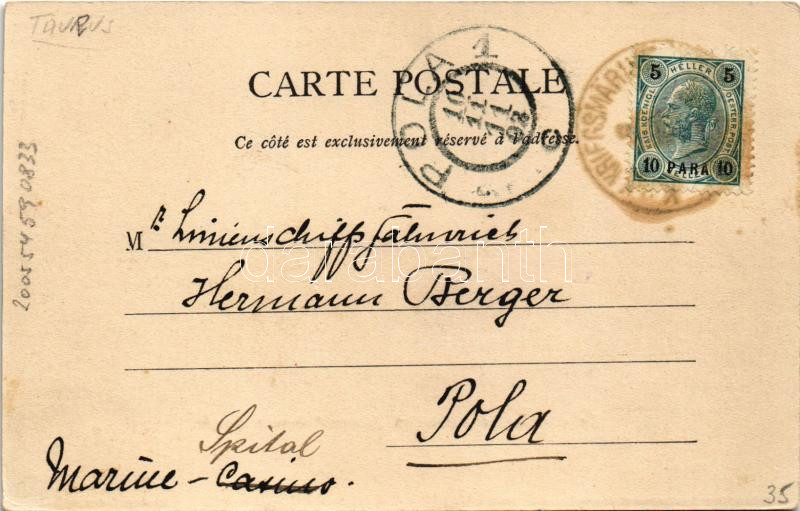 TAURUS
CARTE POSTALE
Ce côté est exclusivement réservé à l'adresse.
POLA 1
10
11
KRIEGSMARINE
5 HELLER 5
10 PARA 10
Mr Linienschiffsfähnrich
Hermann Berger
Pola
Spital
Marine - Casino.
darabanth
35